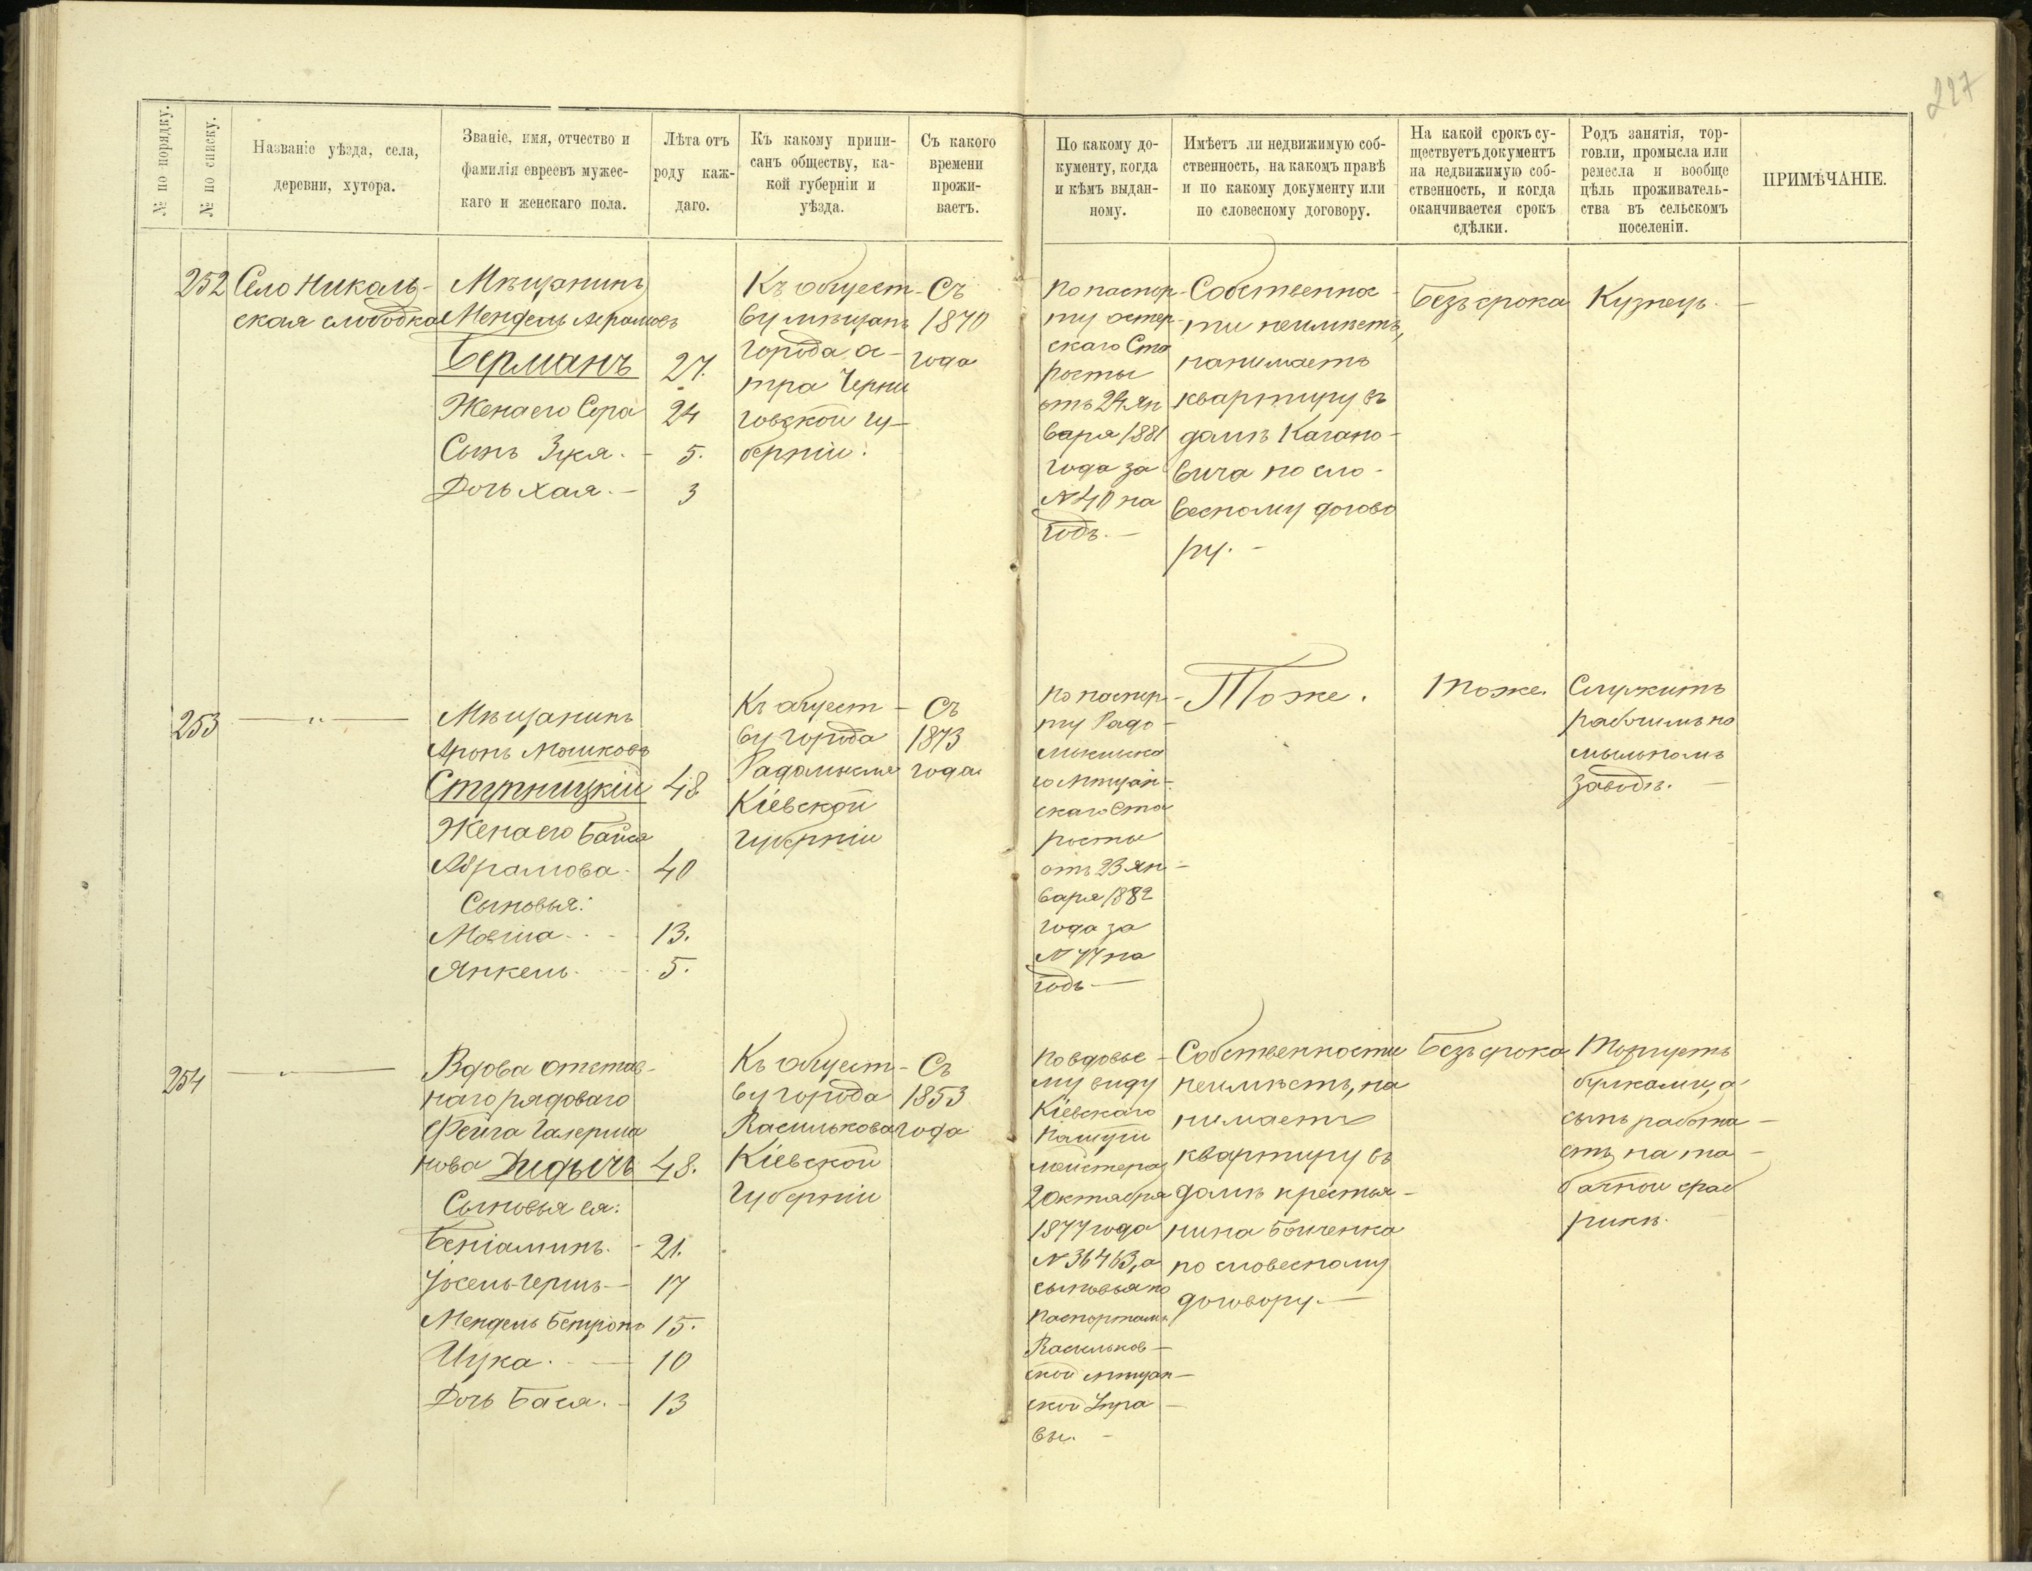 227
№ по порядку.
№ по списку.
Названіе уѣзда, села,
деревни, хутора.
Званіе, имя, отчество и
фамилія евреевъ мужес-
каго и женскаго пола.
Лѣта отъ
роду каж-
даго.
Къ какому припи-
санъ обществу, ка-
кой губерніи и
уѣзда.
Съ какого
времени
прожи-
ваетъ.
По какому до-
кументу, когда
и кѣмъ выдан-
ному.
Имѣетъ ли недвижимую соб-
ственность, на какомъ правѣ
и по какому документу или
по словесному договору.
На какой срокъ су-
ществуетъ документъ
на недвижимую соб-
ственность, и когда
оканчивается срокъ
сдѣлки.
Родъ занятія, тор-
говли, промысла или
ремесла и вообще
цѣль проживатель-
ства въ сельскомъ
поселеніи.
ПРИМѢЧАНІЕ.
252
Село Николь-
ская слободка
Мѣщанинъ
Мендель
Берманъ 27.
Жена его Сора 24
Сынъ Зуся. - 5.
Дочь Хая. - 3
Къ общест-
ву мѣщанъ
города Ос-
тра Черни
говской гу-
берніи.
Съ
1870
года
По паспор-
ту Остер-
скаго Ста
росты
отъ 24 Ян
варя 1881
года за
№ 40 на
годъ. -
Собственнос-
ти неимѣетъ,
нанимаетъ
квартиру въ
домѣ Кагано-
вича по сло-
весному догово
ру. -
Безъ срока
Кузнецъ. -
253
— " —
Мѣщанинъ
Аронъ Мошковъ
Ступницкій 48
Жена его Бася
Абрамова. 40
Сыновья:
Мовша. - - 13.
Янкель. - - 5.
Къ общест-
ву города
Радомысля
Кіевской
Губерніи
Съ
1873
года
По паспор-
ту Радо-
мысльска
го Мѣщан-
скаго Ста
росты
отъ 23 Ян-
варя 1882
года за
№ 77 на
годъ —
Тоже.
Тоже.
Служитъ
рабочимъ на
мыльномъ
заводѣ. -
254
— " —
Вдова отстав-
наго рядоваго
Фейга
48.
Сыновья ея:
Беніаминъ. - 21.
17
Мендель 15.
Ицка. - — 10
Дочь Бася. - 13
Къ общест-
ву города
Василькова
Кіевской
Губерніи
Съ
1853
года
По вдовье-
му виду
Кіевскаго
Полиціи
мейстера
2 Октября
1877 года
№ 36463, а
сыновья по
паспортамъ
Васильков-
ской Мѣщан-
ской Упра-
вы. -
Собственности
неимѣетъ, на
нимаетъ
квартиру въ
домѣ крестья-
нина Бойченка
по словесному
договору. —
Безъ срока
Торгуетъ
булками, а
сынъ работа-
етъ на та-
бачной фаб
рикѣ.